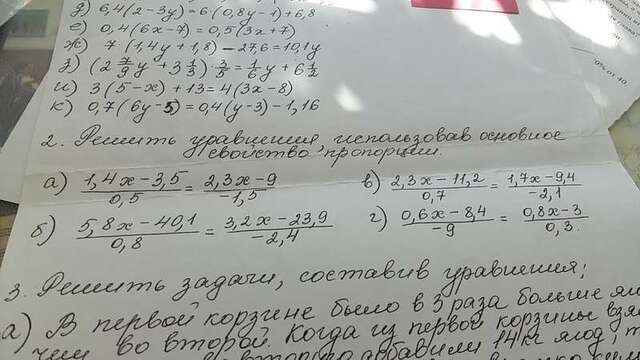 д) 6,4(2-3y)=6(0,8y-1)+6,8
е) 0,4(6x-7)=0,5(3x+7)
ж) 7(1,4y+1,8)-27,6=10,1y
з) (2 7/9 y + 3 1/3)·3/5 = 1/6 y + 6 1/2
и) 3(5-x)+13=4(3x-8)
к) 0,7(6y-5)=0,4(y-3)-1,16
2. Решить уравнения, использовав основное
свойство пропорции.
а) (1,4x-3,5)/0,5 = (2,3x-9)/-1,5
в) (2,3x-11,2)/0,7 = (1,7x-9,4)/-2,1
б) (5,8x-40,1)/0,8 = (3,2x-23,9)/-2,4
г) (0,6x-8,4)/-9 = (0,8x-3)/0,3
3. Решить задачи, составив уравнения;
а) В первой корзине было в 3 раза больше
чем во второй. Когда из первой корзины
добавили 14 кг ягод,